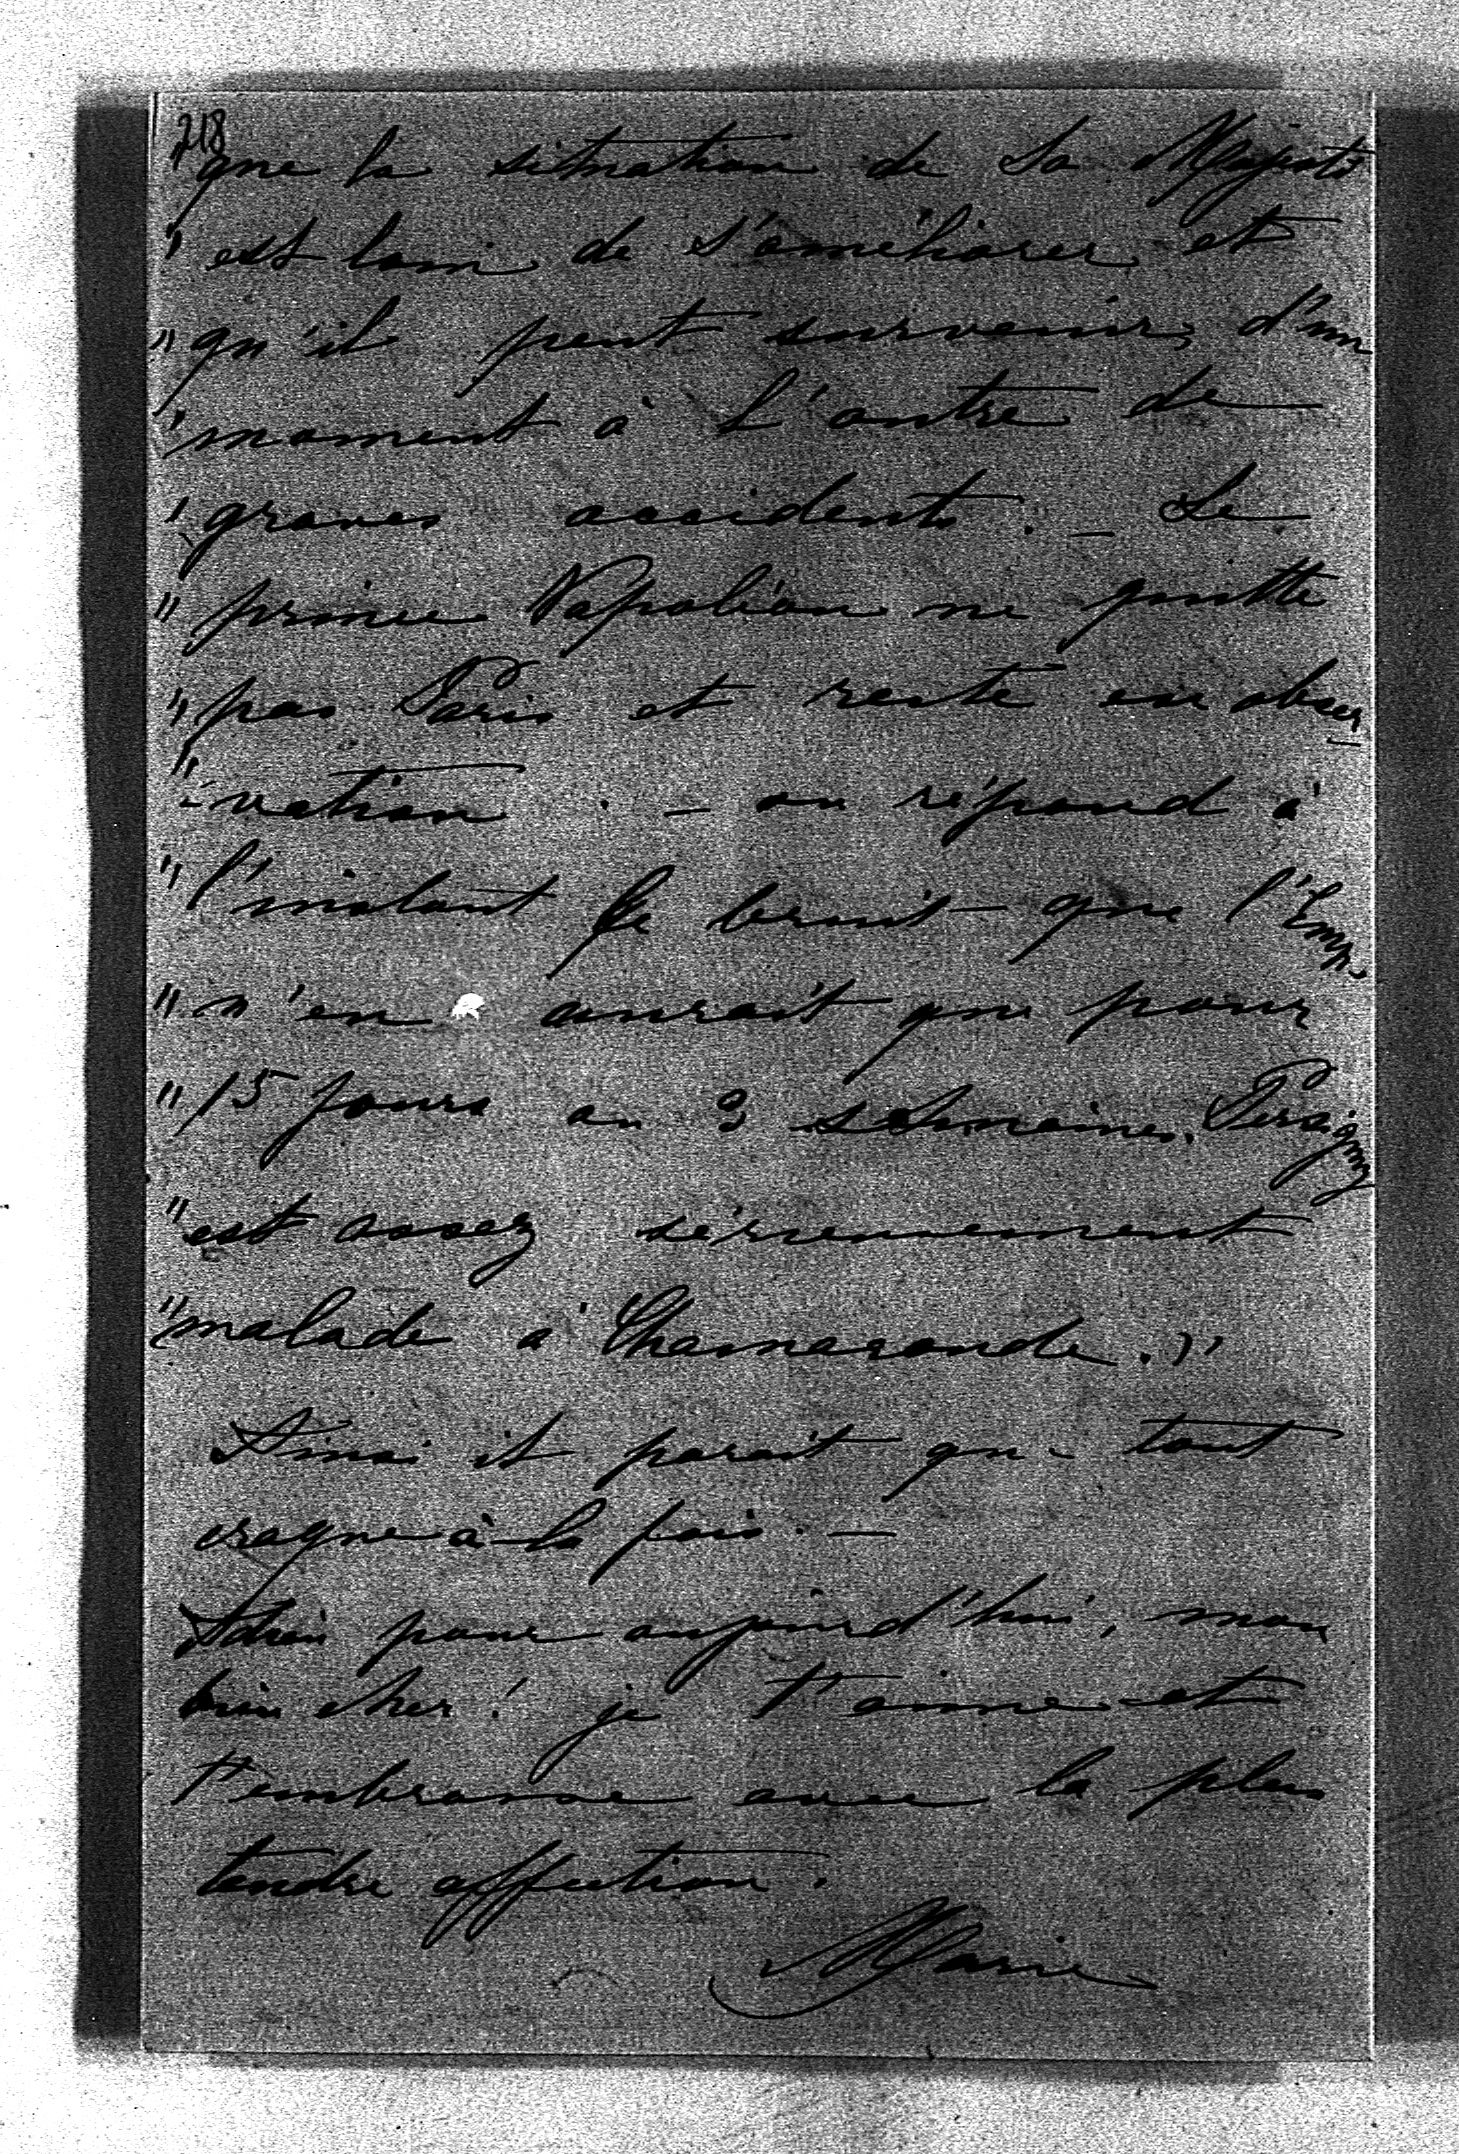 218
" que la situation de Sa Majesté
" est loin de s'améliorer et
" qu'il peut survenir, d'un
" moment à l'autre de
" graves accidents. – Le
" prince Napoléon ne quitte
" pas Paris et reste en obser
" -vation. – on répond à
" l'instant le bruit – que l'Emp.
" n'en aurait que pour
" 15 jours ou 3 semaines. Persigny
" est assez sérieusement
" malade à Chamarande. »
Ainsi il parait que tout
craque à la fois. –
Adieu pour aujourd'hui, mon
bien cher! je t'aime et
t'embrasse avec la plus
tendre affection.
Marie